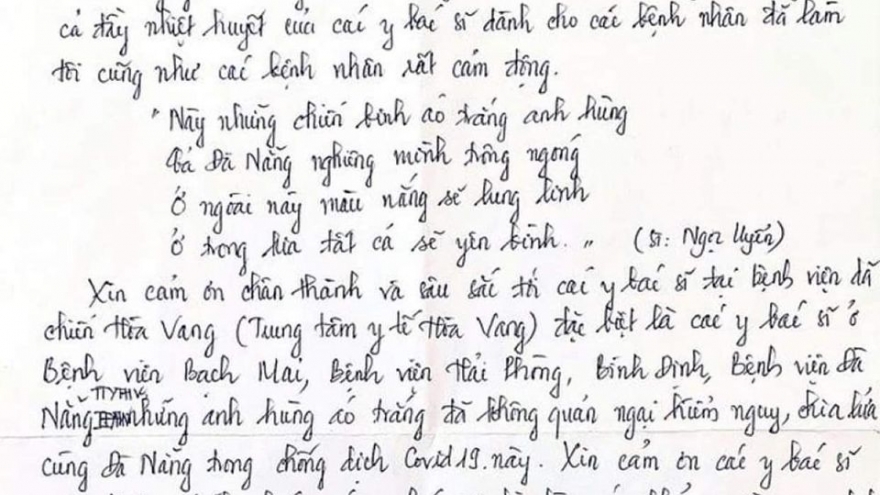 cả đầy nhiệt huyết của các y bác sĩ dành cho các bệnh nhân đã làm
tôi cũng như các bệnh nhân rất cảm động.
"Này những chiến binh áo trắng anh hùng
Cả Đà Nẵng nghiêng mình trông ngóng
Ở ngoài này màu nắng sẽ lung linh
Ở trong kia tất cả sẽ yên bình." (St: Ngọc Uyển)
Xin cảm ơn chân thành và sâu sắc tới các y bác sĩ tại bệnh viện dã
chiến Hòa Vang (Trung tâm y tế Hòa Vang) đặc biệt là các y bác sĩ ở
Bệnh viện Bạch Mai, Bệnh viện Hải Phòng, Bình Định, Bệnh viện Đà
Nẵng những anh hùng áo trắng đã không quản ngại hiểm nguy, chia lửa
cùng Đà Nẵng trong chống dịch Covid 19 này. Xin cảm ơn các y bác sĩ